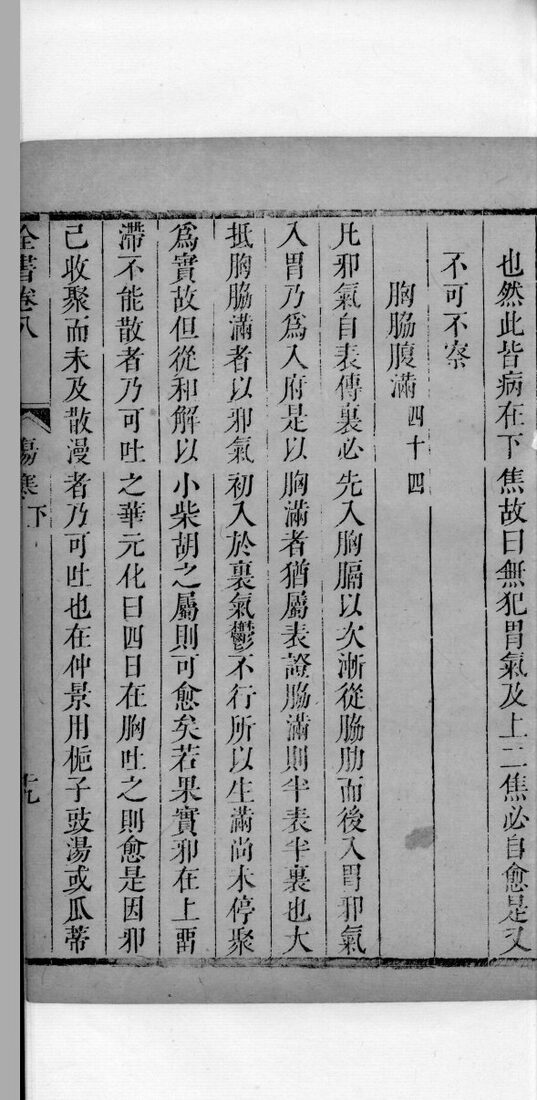 也然此皆病在下焦故曰無犯胃氣及上二焦必自愈是又
不可不察
胸脇腹滿四十四
凡邪氣自表傳裏必先入胸膈以次漸從脇肋而後入胃邪氣
入胃乃爲入府是以胸滿者猶屬表證脇滿則半表半裏也大
抵胸脇滿者以邪氣初入於裏氣鬱不行所以生滿尚未停聚
爲實故但從和解以小柴胡之屬則可愈矣若果實邪在上留
滯不能散者乃可吐之華元化曰四日在胸吐之則愈是因邪
已收聚而未及散漫者乃可吐也在仲景用梔子豉湯或瓜蒂
全書卷八 傷寒下 十九